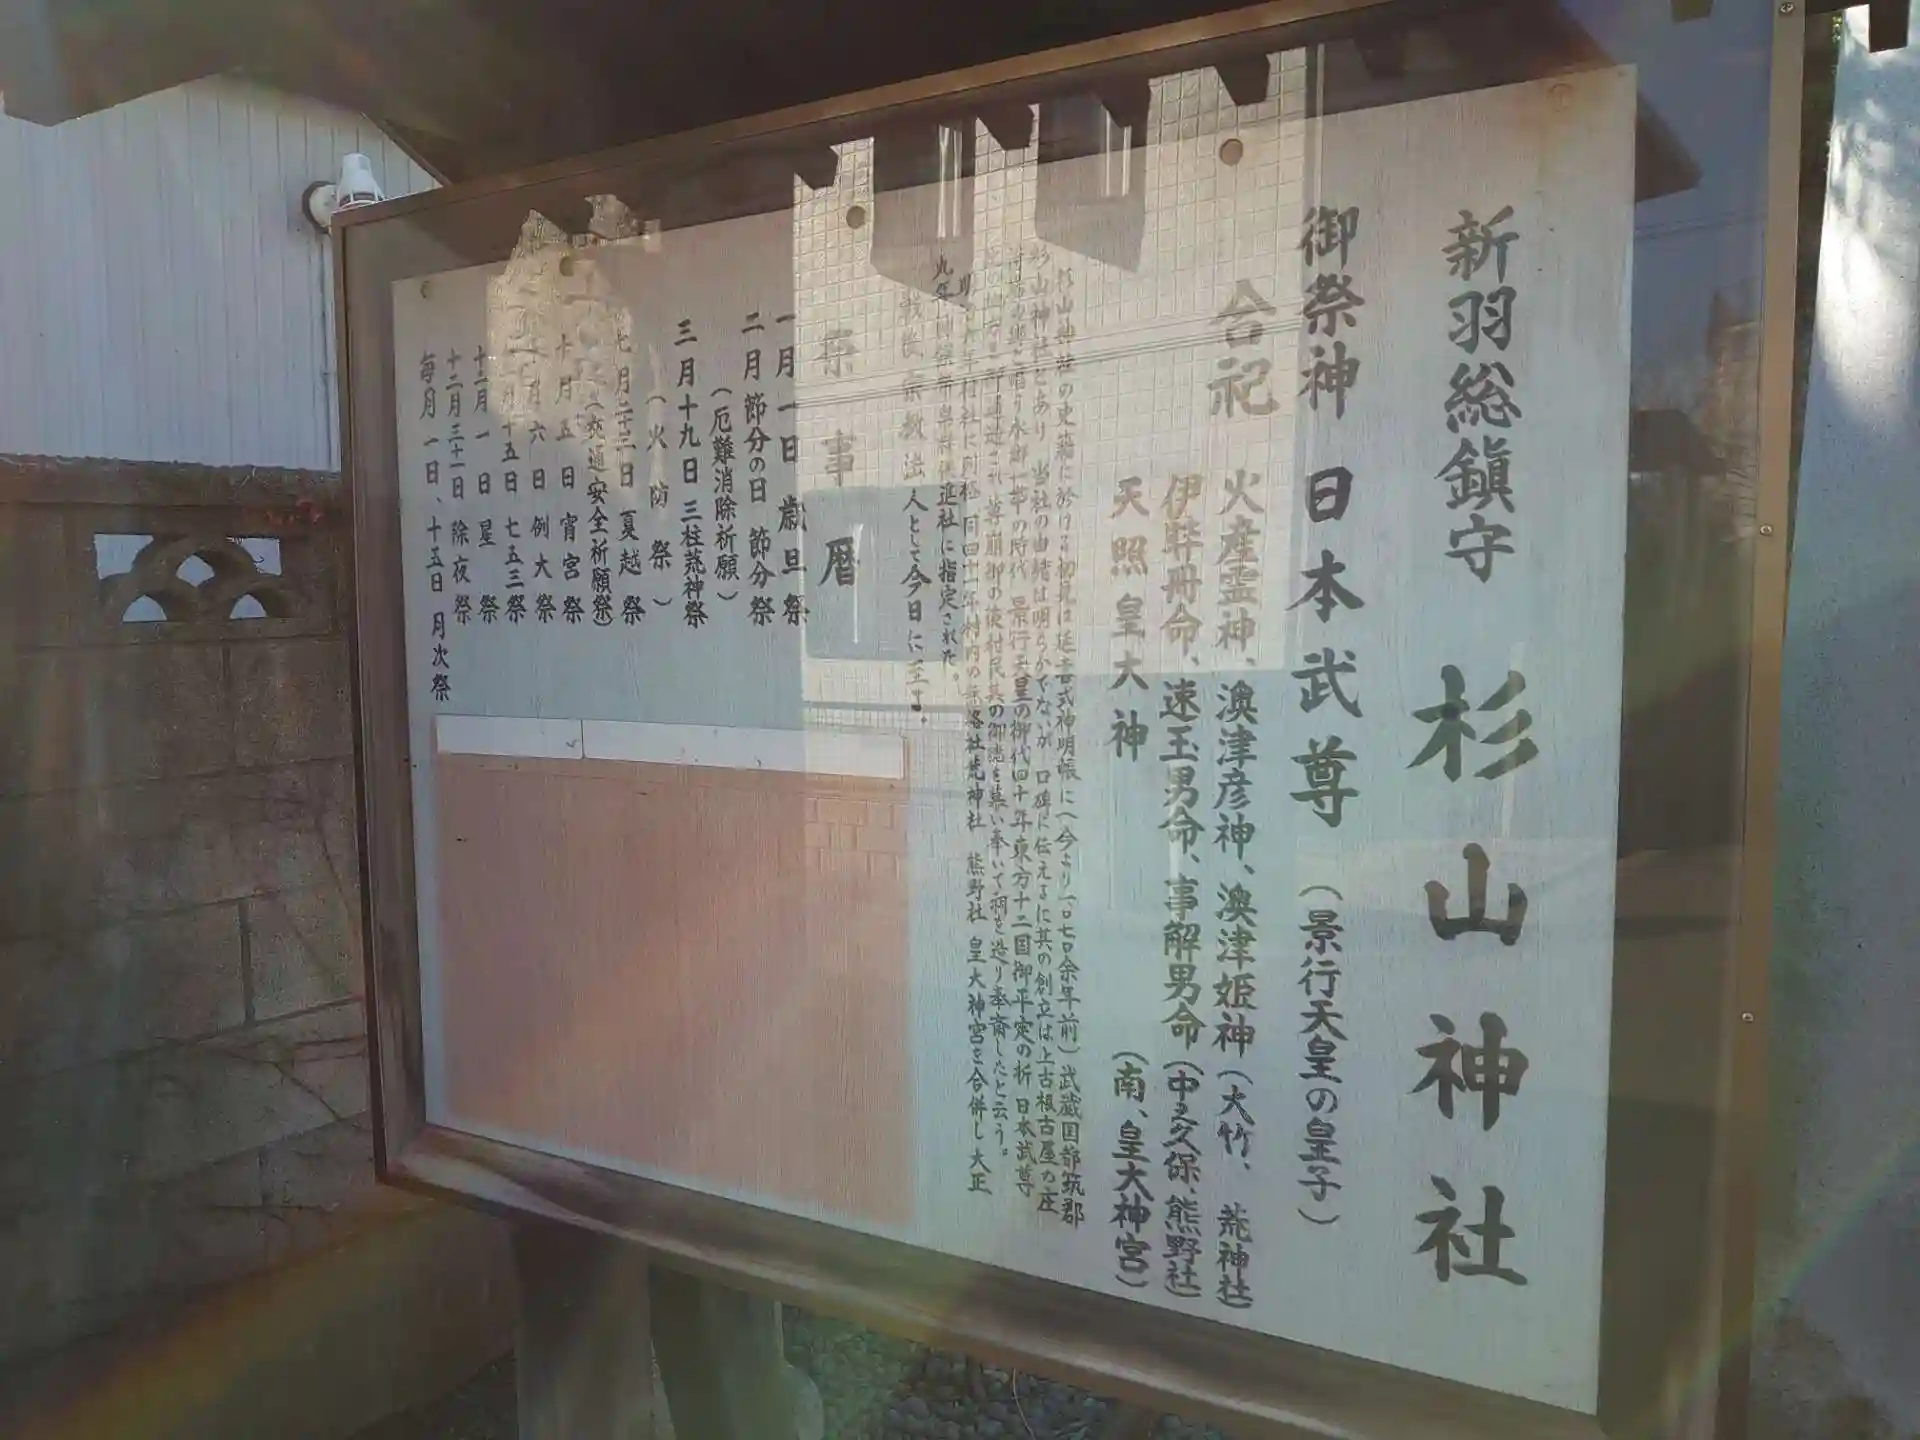 新羽総鎮守 杉山神社
御祭神 日本武尊 (景行天皇の皇子)
合祀 火産霊神、澳津彦神、澳津姫神 (大竹、荒神社)
伊弉冊命、速玉男命、事解男命 (中之久保、熊野社)
天照皇大神 (南、皇大神宮)
杉山神社の史籍に於ける初見は延喜式神明帳に(今より一〇七〇余年前)武蔵国都筑郡
杉山神社とあり 当社の由緒は明らかでないが 口碑に伝えるに其の創立は上古根古屋の庄
と唱り水郷一帯の時代 景行天皇の御代四十年東方十二国御平定の折 日本武尊
尊崩御の後村民其の御徳を慕い奉いて祠を造り奉斎したと云う。
年村社に列格 同四十一年村内の 社荒神社 熊野社 皇大神宮を合併し大正
九年 神饌幣帛料供進社に指定された。
戦後宗教法人として今日に至る。
祭事暦
一月一日 歳旦祭
二月節分の日 節分祭
(厄難消除祈願)
三月十九日 三柱荒神祭
(火防祭)
七月三十二日 夏越祭
(交通安全祈願祭)
十月五日 宵宮祭
十月六日 例大祭
十五日 七五三祭
十二月一日 星祭
十二月三十一日 除夜祭
毎月一日、十五日 月次祭